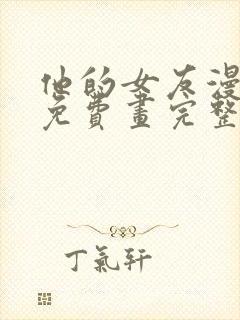 他的女友漫
免費畫完整
丁氣軒